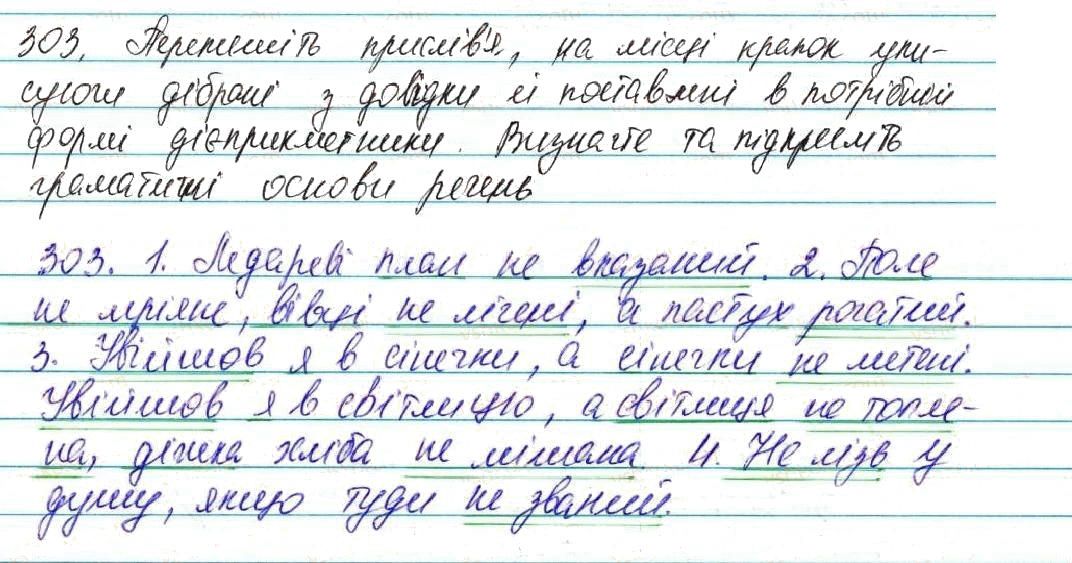 303. Перепишіть прислів'я, на місці крапок упи-
суючи дібрані з довідки й поставлені в потрібній
формі дієприкметники. Визначте та підкресліть
граматичні основи речень
303. 1. Ледареві план не вказаний. 2. Поле
не міряне, вівці не лічені, а пастух рогатий.
3. Увійшов я в сінечки, а сінечки не метені.
Увійшов я в світлицю, а світлиця не топле-
на, діжка хліба не мішана 4. Не лізь у
душу, якщо туди не званий.